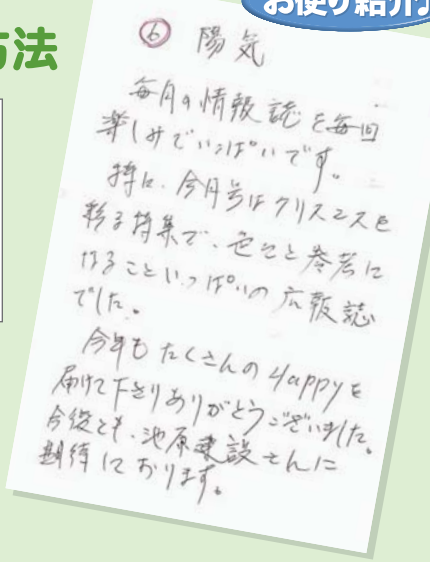 お便り紹介
方法
⑥ 陽気
毎月の情報誌を毎回
楽しみでいっぱいです。
特に、今月号はクリスマスを
彩る特集で、色々と参考に
なることいっぱいの広報誌
でした。
今年もたくさんのHappyを
届けて下さりありがとうございました。
今後とも、池原建設さんに
期待しております。